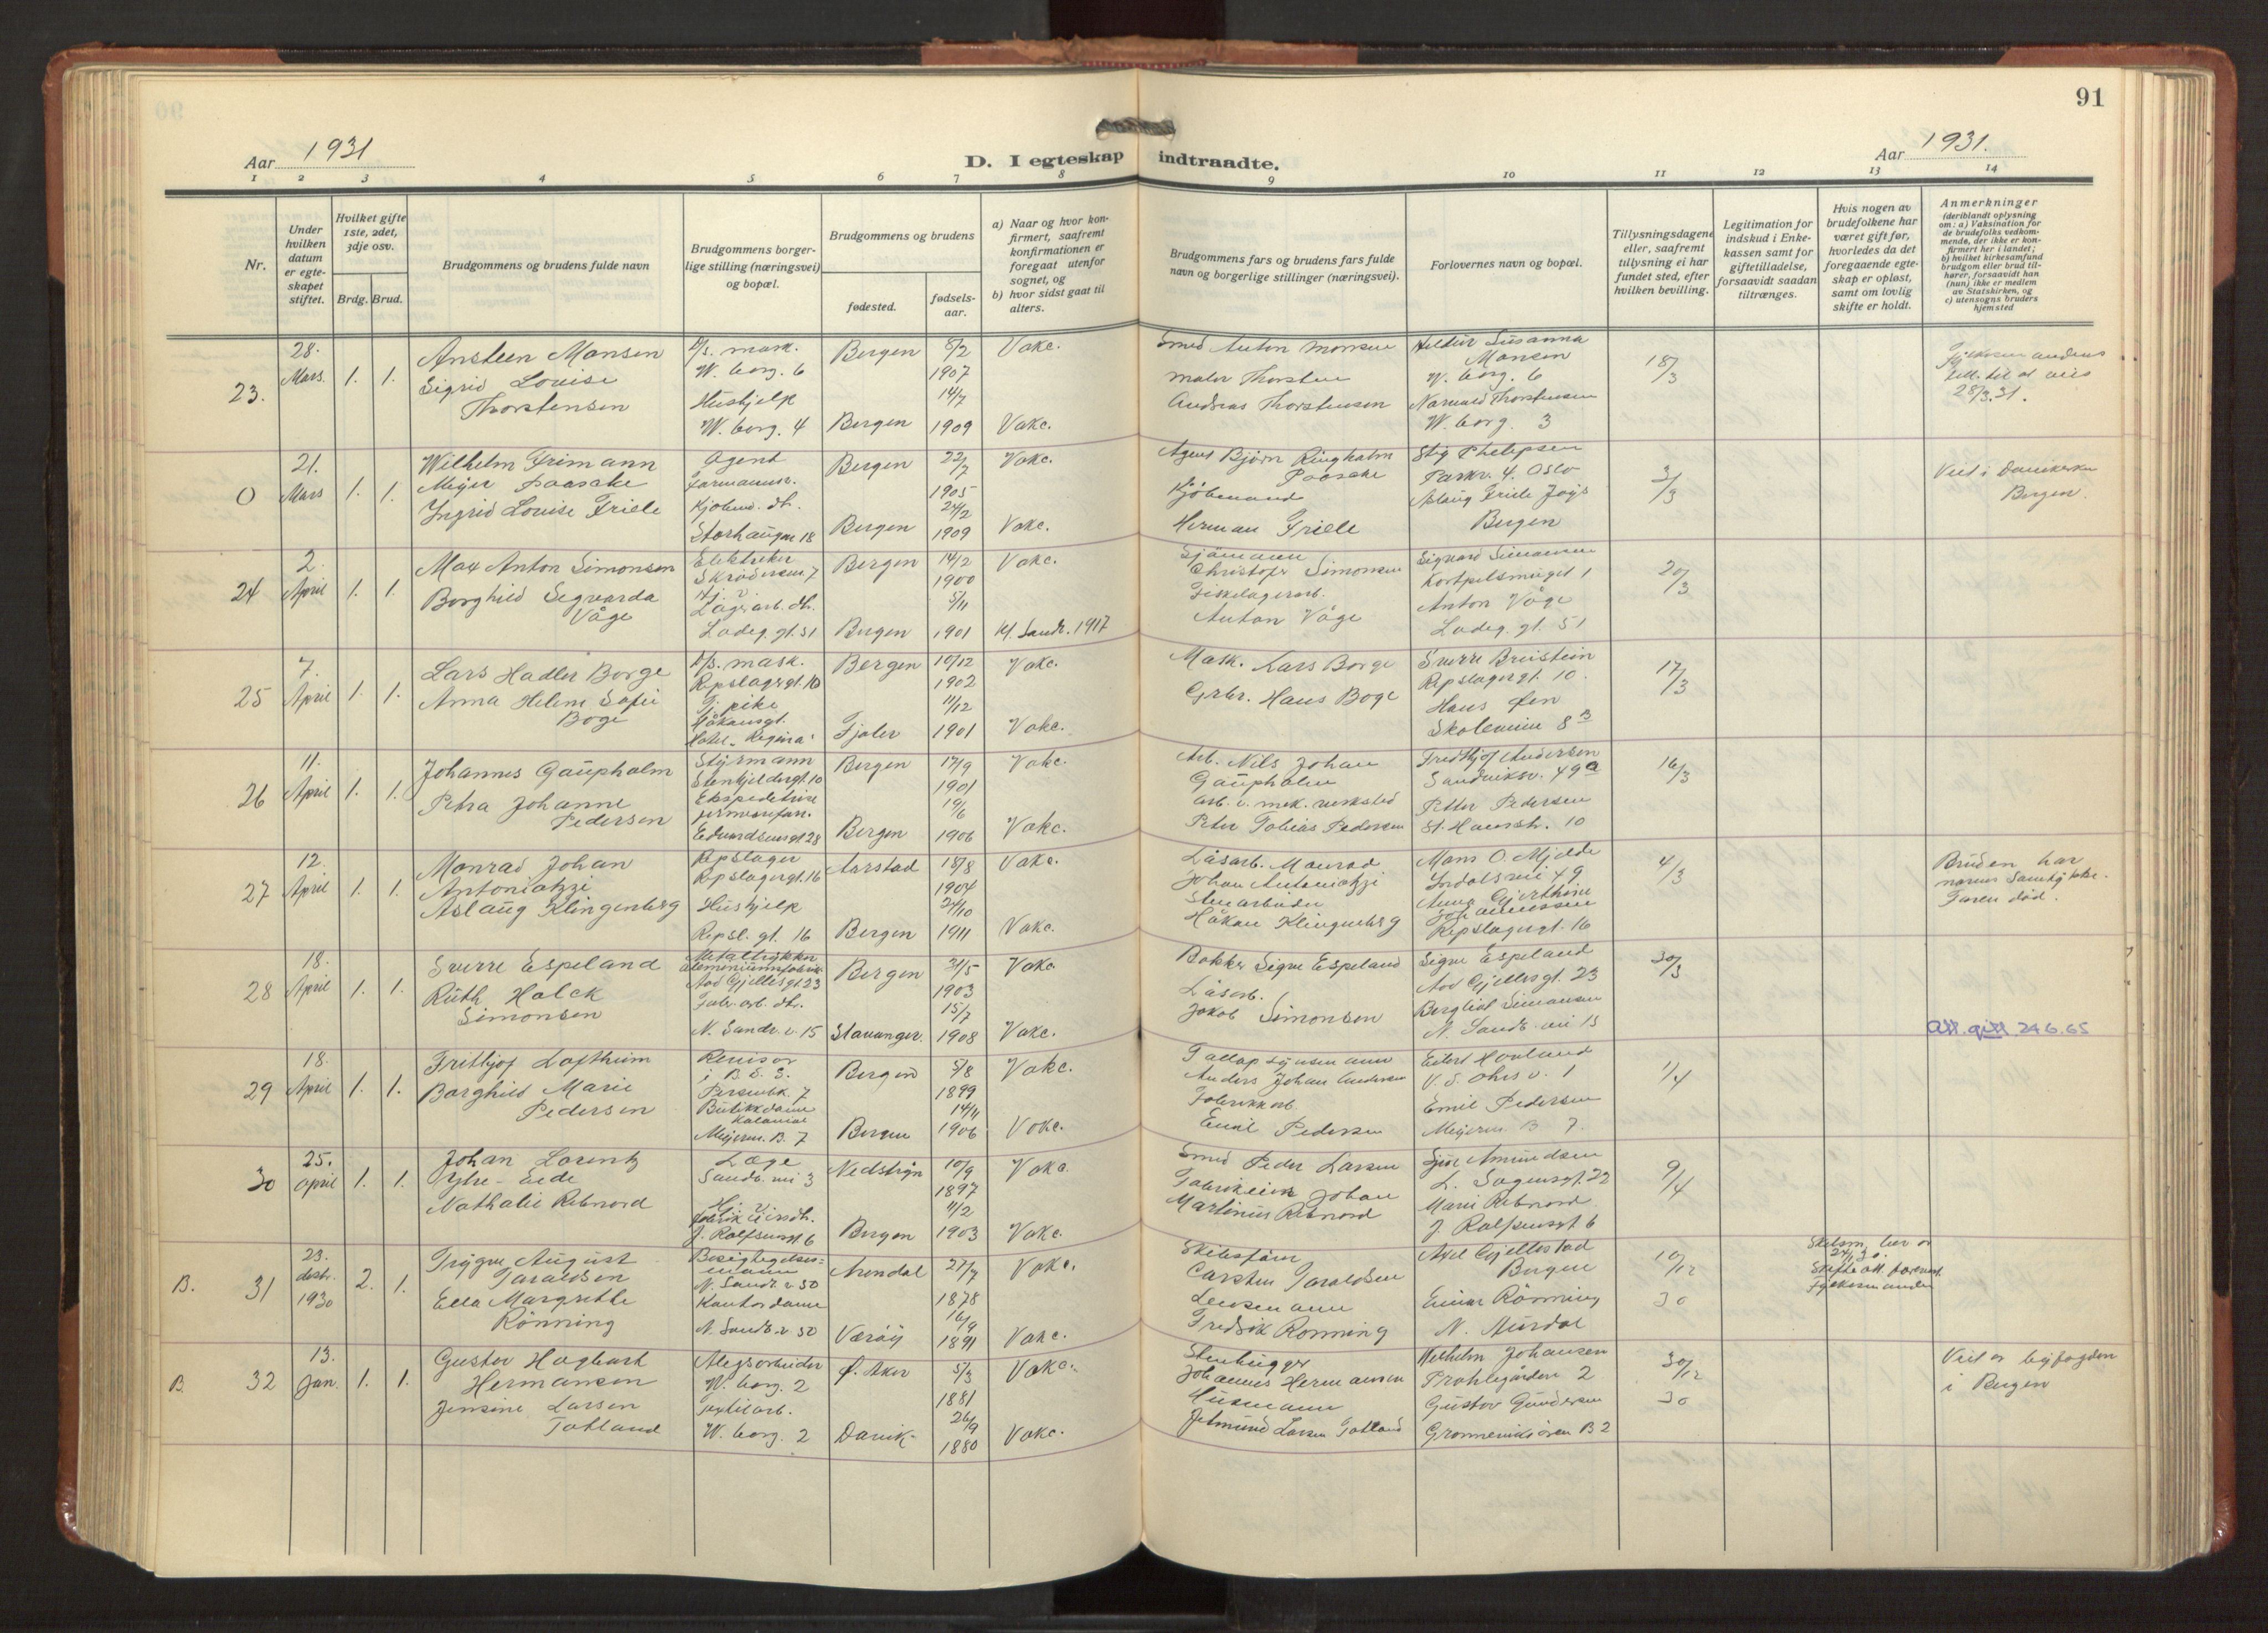 91
Aar 1931
D. I egteskap indtraadte.
Aar 1931.
1 2 3 4 5 6 7 8 9 10 11 12 13 14
Nr.
Under hvilken datum er egteskapet stiftet.
Hvilket gifte 1ste, 2det, 3dje osv.
Brdg. Brud.
Brudgommens og brudens fulde navn
Brudgommens borgerlige stilling (næringsvei) og bopæl.
Brudgommens og brudens
fødested.
fødselsaar.
a) Naar og hvor konfirmert, saafremt konfirmationen er foregaat utenfor sognet, og
b) hvor sidst gaat til alters.
Brudgommens fars og brudens fars fulde navn og borgerlige stillinger (næringsvei).
Forlovernes navn og bopæl.
Tillysningsdagene eller, saafremt tillysning ei har fundet sted, efter hvilken bevilling.
Legitimation for indskud i Enkekassen samt for giftetilladelse, forsaavidt saadan tiltrænges.
Hvis nogen av brudefolkene har været gift før, hvorledes da det foregaaende egteskap er opløst, samt om lovlig skifte er holdt.
Anmerkninger
(deriblandt oplysning om: a) Vaksination for de brudefolks vedkommende, der ikke er konfirmert her i landet; b) hvilket kirkesamfund brudgom eller brud tilhører, forsaavidt han (hun) ikke er medlem av Statskirken, og c) utensogns bruders hjemsted
23. 28. Mars. 1. 1.
Ansteen Monsen
Sigrid Louise
Thorstensen
D/s. mask.
W. borg. 6
Hushjelp
W. borg. 4
Bergen 8/2 1907 Vakc.
Bergen 14/7 1909 Vakc.
Smed Anton Monsen
Maler Thorsten
Andreas Thorstensen
Susanna
Monsen
W. borg. 6
Thorstensen
W. borg. 3
18/3
28/3.31.
0 21. Mars 1. 1.
Wilhelm Frimann
Meyer Paasche
Ingrid Louise Friele
Agent
Kjøbmd. dtr.
Storhaugen 18
Bergen 22/7 1905 Vakc.
Bergen 24/2 1909 Vakc.
Agent Bjørn Ringholm
Paasche
Kjøbmand
Herman Friele
Stig Phelepsen
Parkv. 4. Oslo
Aslaug Friele
Bergen
3/3
Viet i Domkirken
Bergen.
24 2. April 1. 1.
Max Anton Simonsen
Borghild Segvarda
Våge
Elektriker
Lagerarb. dtr.
Ladeg. gt. 51
Bergen 14/2 1900 Vakc.
Bergen 5/11 1901 Kf. Sandv. 1917
Sjömann
Christofer Simonsen
Fiskelagerarb.
Anton Våge
Sigvard Simonsen
Anton Våge
Ladeg. gt. 51
20/3
25 7. April 1. 1.
Lars Hadler Borge
Anna Helene Sofie
Boge
D/s. mask.
Repslagergt. 10
Tj. pike
Håkonsgt.
Hotel "Regina"
Bergen 10/12 1902 Vakc.
Fjaler 11/12 1901 Vakc.
Mask. Lars Borge
Grbr. Hans Boge
Sverre Breistein
Repslagergt. 10.
Hans Øen
8 B
17/3
26 11. April 1. 1.
Johannes Gaupholm
Petra Johanne
Pedersen
Styrmann
Stenkjeldergt. 10
Ekspeditrise
Edvardsensgt 28
Bergen 17/9 1901 Vakc.
Bergen 19/6 1906 Vakc.
Arb. Nils Johan
Gaupholm
Arb. v. mek. verksted
Peter Tobias Pedersen
Fredthjof Andersen
Sandviksv. 49a
Petter Pedersen
St. Hansstr. 10
16/3
27 12. April 1. 1.
Monrad Johan
Antoniazzi
Aslaug Klingenberg
Repslager
Repslagergt. 16
Hushjelp
Repsl. gt. 16
Aarstad 18/8 1904 Vakc.
Bergen 24/10 1911 Vakc.
Låsarb. Monrad
Johan Antoniazzi
Stenarbeider
Håkon Klingenberg
Mons O. Mjelde
49
Anna Gjerthine
Johannessen
Repslagergt. 16
4/3
Bruden har
Faren död.
28 18. April 1. 1.
Sverre Espeland
Ruth Holck
Simonsen
Metalltrykker
Aluminiumsfabrik
Aad Gjellesgt. 23
Fabr. arb. dtr.
N. Sandv. v. 15
Bergen 31/5 1903 Vakc.
Stavanger. 15/7 1908 Vakc.
Bøkker Sigve Espeland
Låsarb.
Jakob Simonsen
Sigve Espeland
Aad Gjellesgt. 23
Bergliot Simonsen
N. Sandv. vei 15
30/3
Att. gitt 24 6. 65
29 18. April 1. 1.
Frithjof Loftheim
Borghild Marie
Pedersen
Revisor
i B. D. S.
Persenbk. 7
Butikkdame
Kolonial
Meyerm. B. 7
Bergen 5/8 1899 Vakc.
Bergen 14/11 1906 Vakc.
Anders Johan Andersen
Fabrikkarb.
Emil Pedersen
Eilert Hovland
Emil Pedersen
Meyerm. B 7.
1/4
30 25. April 1. 1.
Johan Lorentz
Ytre-Eide
Nathalie Rebnord
Læge
Sandv. vei 3
J. Rolfsensgt 6
Nedstryn 10/9 1897 Vakc.
Bergen 11/2 1903 Vakc.
Smed Peder Larsen
Johan
Martinus Rebnord
Amundsen
L. Sagensgt. 22
Marie Rebnord
J. Rolfsensgt 6
9/4
B. 31 23. desbr. 1930 2. 1.
Trygve August
Taraldsen
Ella Margrethe
Rönning
Besigtigelsesmann
N. Sandv. v. 50
Kontordame
N. Sandv. v. 50
Arendal 27/7 1878 Vakc.
Værøy 16/9 1891 Vakc.
Skibsfører
Carsten Taraldsen
Lensmann
Fredrik Rønning
Axel Gjellestad
Bergen
Einar Rönning
N. Aurdal
10/12 30
Fylkesmanden
B. 32 13. Jan. 1. 1.
Gustav Hagbart
Hermansen
Jensine Larsen
Totland
W. borg. 2
Textilarb.
W. borg. 2
Ø. Aker 5/3 1881 Vakc.
Davik. 26/9 1880 Vakc.
Stenhugger
Johannes Hermansen
Husmann
Jetmund Larsen Totland
Wilhelm Johansen
2
Gustav Gundersen
B 2
30/12 30
Viet av byfogden
i Bergen